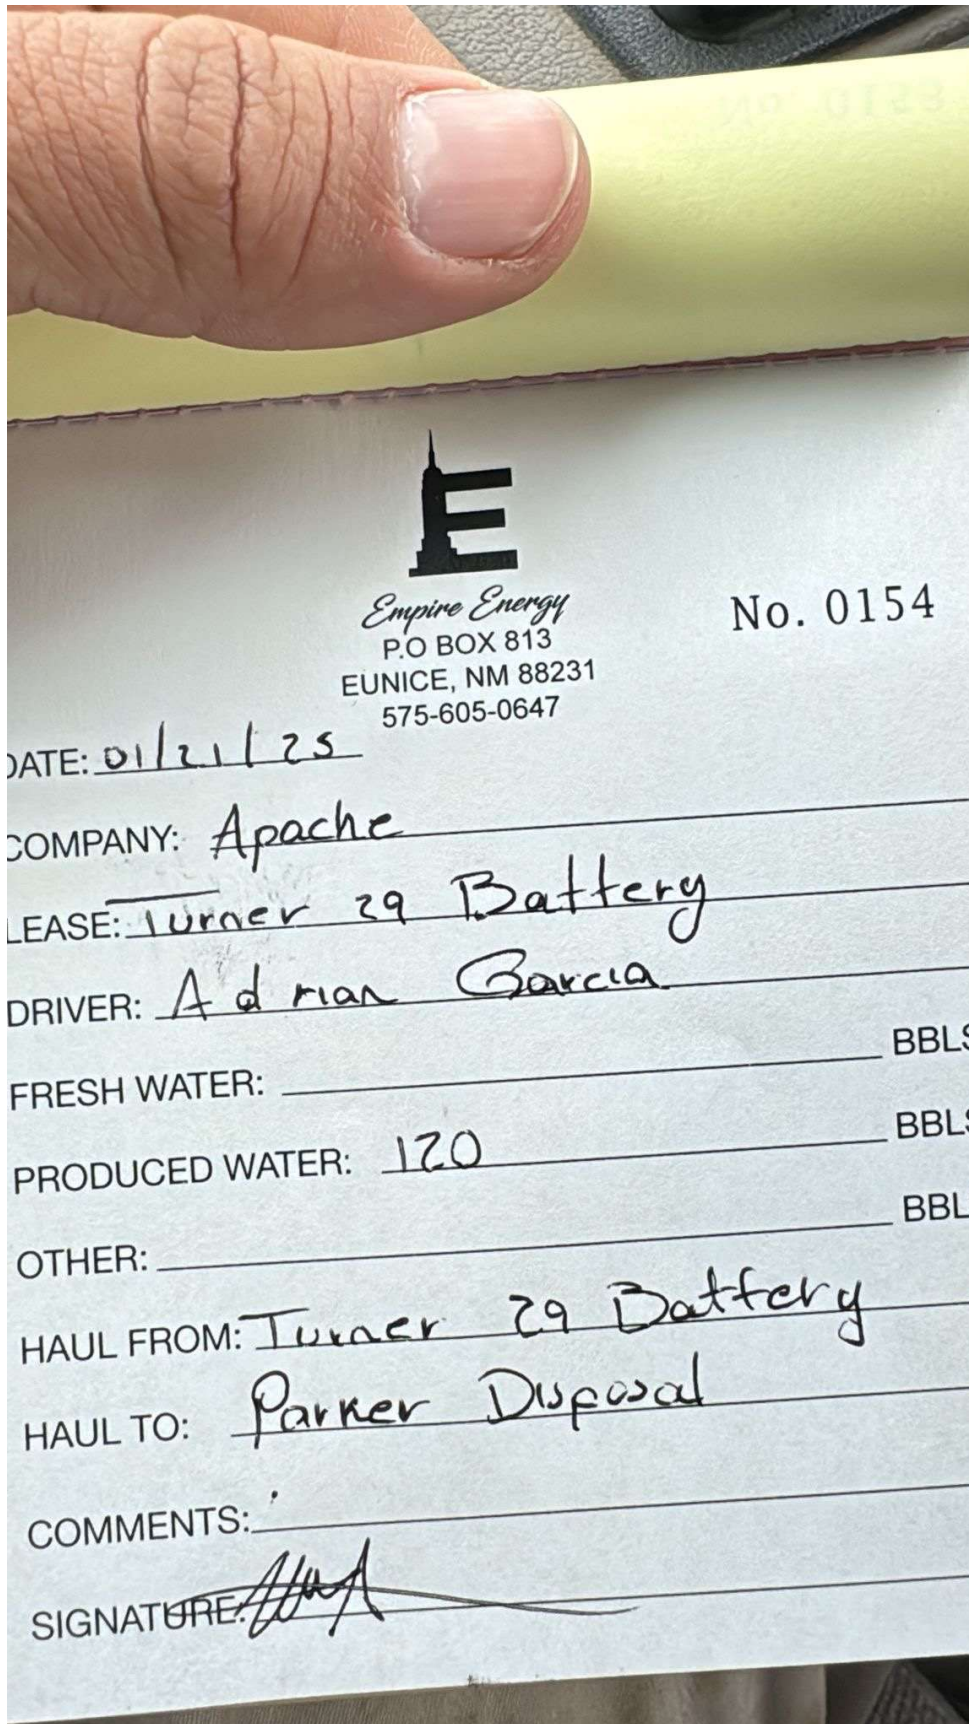 Empire Energy
P.O BOX 813
EUNICE, NM 88231
575-605-0647
No. 0154
DATE: 01/21/25
COMPANY: Apache
LEASE: Turner 29 Battery
DRIVER: Adrian Garcia
FRESH WATER: BBLS
PRODUCED WATER: 120 BBLS
OTHER: BBL
HAUL FROM: Turner 29 Battery
HAUL TO: Parker Disposal
COMMENTS:
SIGNATURE: